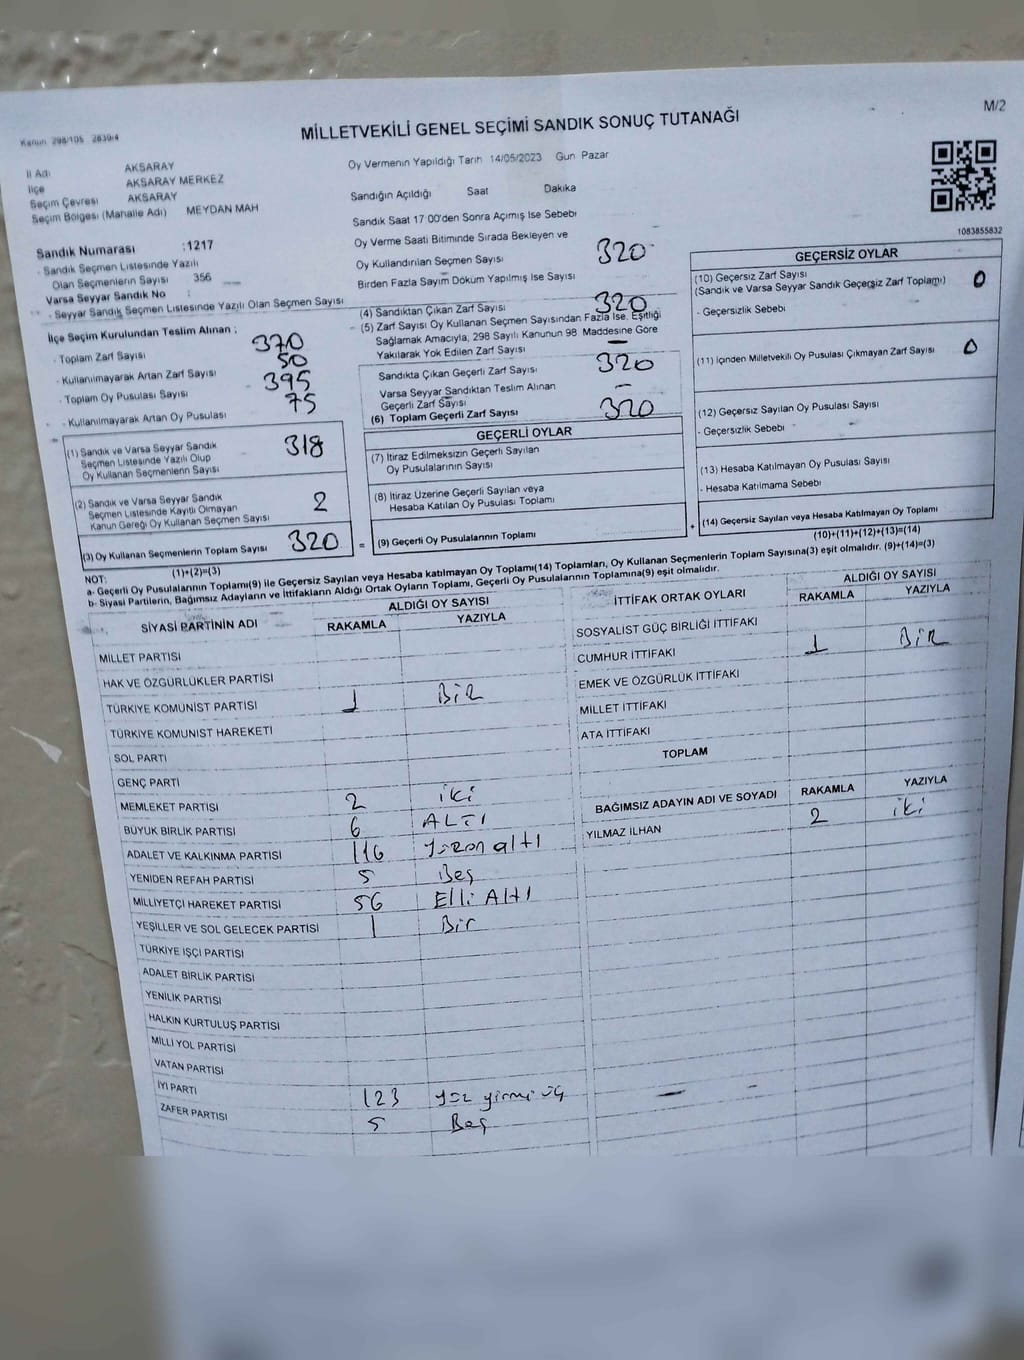 Kanun 298/105 2839/4
M/2
MİLLETVEKİLİ GENEL SEÇİMİ SANDIK SONUÇ TUTANAĞI
İl Adı AKSARAY
İlçe AKSARAY MERKEZ
Seçim Çevresi AKSARAY
Seçim Bölgesi (Mahalle Adı) MEYDAN MAH
Sandık Numarası : 1217
- Sandık Seçmen Listesinde Yazılı
Olan Seçmenlerin Sayısı 356
Varsa Seyyar Sandık No :
- Seyyar Sandık Seçmen Listesinde Yazılı Olan Seçmen Sayısı
İlçe Seçim Kurulundan Teslim Alınan ;
- Toplam Zarf Sayısı 370
- Kullanılmayarak Artan Zarf Sayısı 50
- Toplam Oy Pusulası Sayısı 395
- Kullanılmayarak Artan Oy Pusulası 75
(1) Sandık ve Varsa Seyyar Sandık
Seçmen Listesinde Yazılı Olup
Oy Kullanan Seçmenlerin Sayısı 318
(2) Sandık ve Varsa Seyyar Sandık
Seçmen Listesinde Kayıtlı Olmayan
Kanun Gereği Oy Kullanan Seçmen Sayısı 2
(3) Oy Kullanan Seçmenlerin Toplam Sayısı 320
(1)+(2)=(3)
Oy Vermenin Yapıldığı Tarih 14/05/2023 Gün Pazar
Sandığın Açıldığı Saat Dakika
Sandık Saat 17:00'den Sonra Açımış İse Sebebi
Oy Verme Saati Bitiminde Sırada Bekleyen ve
Oy Kullandırılan Seçmen Sayısı 320
Birden Fazla Sayım Döküm Yapılmış İse Sayısı
(4) Sandıktan Çıkan Zarf Sayısı 320
(5) Zarf Sayısı Oy Kullanan Seçmen Sayısından Fazla İse, Eşitliği
Sağlamak Amacıyla, 298 Sayılı Kanunun 98. Maddesine Göre
Yakılarak Yok Edilen Zarf Sayısı –
Sandıkta Çıkan Geçerli Zarf Sayısı 320
Varsa Seyyar Sandıktan Teslim Alınan
Geçerli Zarf Sayısı –
(6) Toplam Geçerli Zarf Sayısı 320
GEÇERLİ OYLAR
(7) İtiraz Edilmeksizin Geçerli Sayılan
Oy Pusulalarının Sayısı
(8) İtiraz Üzerine Geçerli Sayılan veya
Hesaba Katılan Oy Pusulası Toplamı
= (9) Geçerli Oy Pusulalarının Toplamı +
1083855832
GEÇERSİZ OYLAR
(10) Geçersiz Zarf Sayısı
(Sandık ve Varsa Seyyar Sandık Geçersiz Zarf Toplamı) 0
- Geçersizlik Sebebi
(11) İçinden Milletvekili Oy Pusulası Çıkmayan Zarf Sayısı 0
(12) Geçersiz Sayılan Oy Pusulası Sayısı
- Geçersizlik Sebebi
(13) Hesaba Katılmayan Oy Pusulası Sayısı
- Hesaba Katılmama Sebebi
(14) Geçersiz Sayılan veya Hesaba Katılmayan Oy Toplamı
(10)+(11)+(12)+(13)=(14)
NOT:
a- Geçerli Oy Pusulalarının Toplamı(9) ile Geçersiz Sayılan veya Hesaba katılmayan Oy Toplamı(14) Toplamları, Oy Kullanan Seçmenlerin Toplam Sayısına(3) eşit olmalıdır. (9)+(14)=(3)
b- Siyasi Partilerin, Bağımsız Adayların ve İttifakların Aldığı Ortak Oyların Toplamı, Geçerli Oy Pusulalarının Toplamına(9) eşit olmalıdır.
SİYASİ PARTİNİN ADI ALDIĞI OY SAYISI
RAKAMLA YAZIYLA
MİLLET PARTİSİ
HAK VE ÖZGÜRLÜKLER PARTİSİ
TÜRKİYE KOMÜNİST PARTİSİ 1 BİR
TÜRKİYE KOMÜNİST HAREKETİ
SOL PARTİ
GENÇ PARTİ
MEMLEKET PARTİSİ 2 iki
BÜYÜK BİRLİK PARTİSİ 6 ALTI
ADALET VE KALKINMA PARTİSİ 116 yüzon altı
YENİDEN REFAH PARTİSİ 5 Beş
MİLLİYETÇİ HAREKET PARTİSİ 56 Elli Altı
YEŞİLLER VE SOL GELECEK PARTİSİ 1 Bir
TÜRKİYE İŞÇİ PARTİSİ
ADALET BİRLİK PARTİSİ
YENİLİK PARTİSİ
HALKIN KURTULUŞ PARTİSİ
MİLLİ YOL PARTİSİ
VATAN PARTİSİ
İYİ PARTİ 123 yüz yirmi üç
ZAFER PARTİSİ 5 Beş
İTTİFAK ORTAK OYLARI ALDIĞI OY SAYISI
RAKAMLA YAZIYLA
SOSYALİST GÜÇ BİRLİĞİ İTTİFAKI
CUMHUR İTTİFAKI 1 BİR
EMEK VE ÖZGÜRLÜK İTTİFAKI
MİLLET İTTİFAKI
ATA İTTİFAKI
TOPLAM
BAĞIMSIZ ADAYIN ADI VE SOYADI RAKAMLA YAZIYLA
YILMAZ İLHAN 2 iki